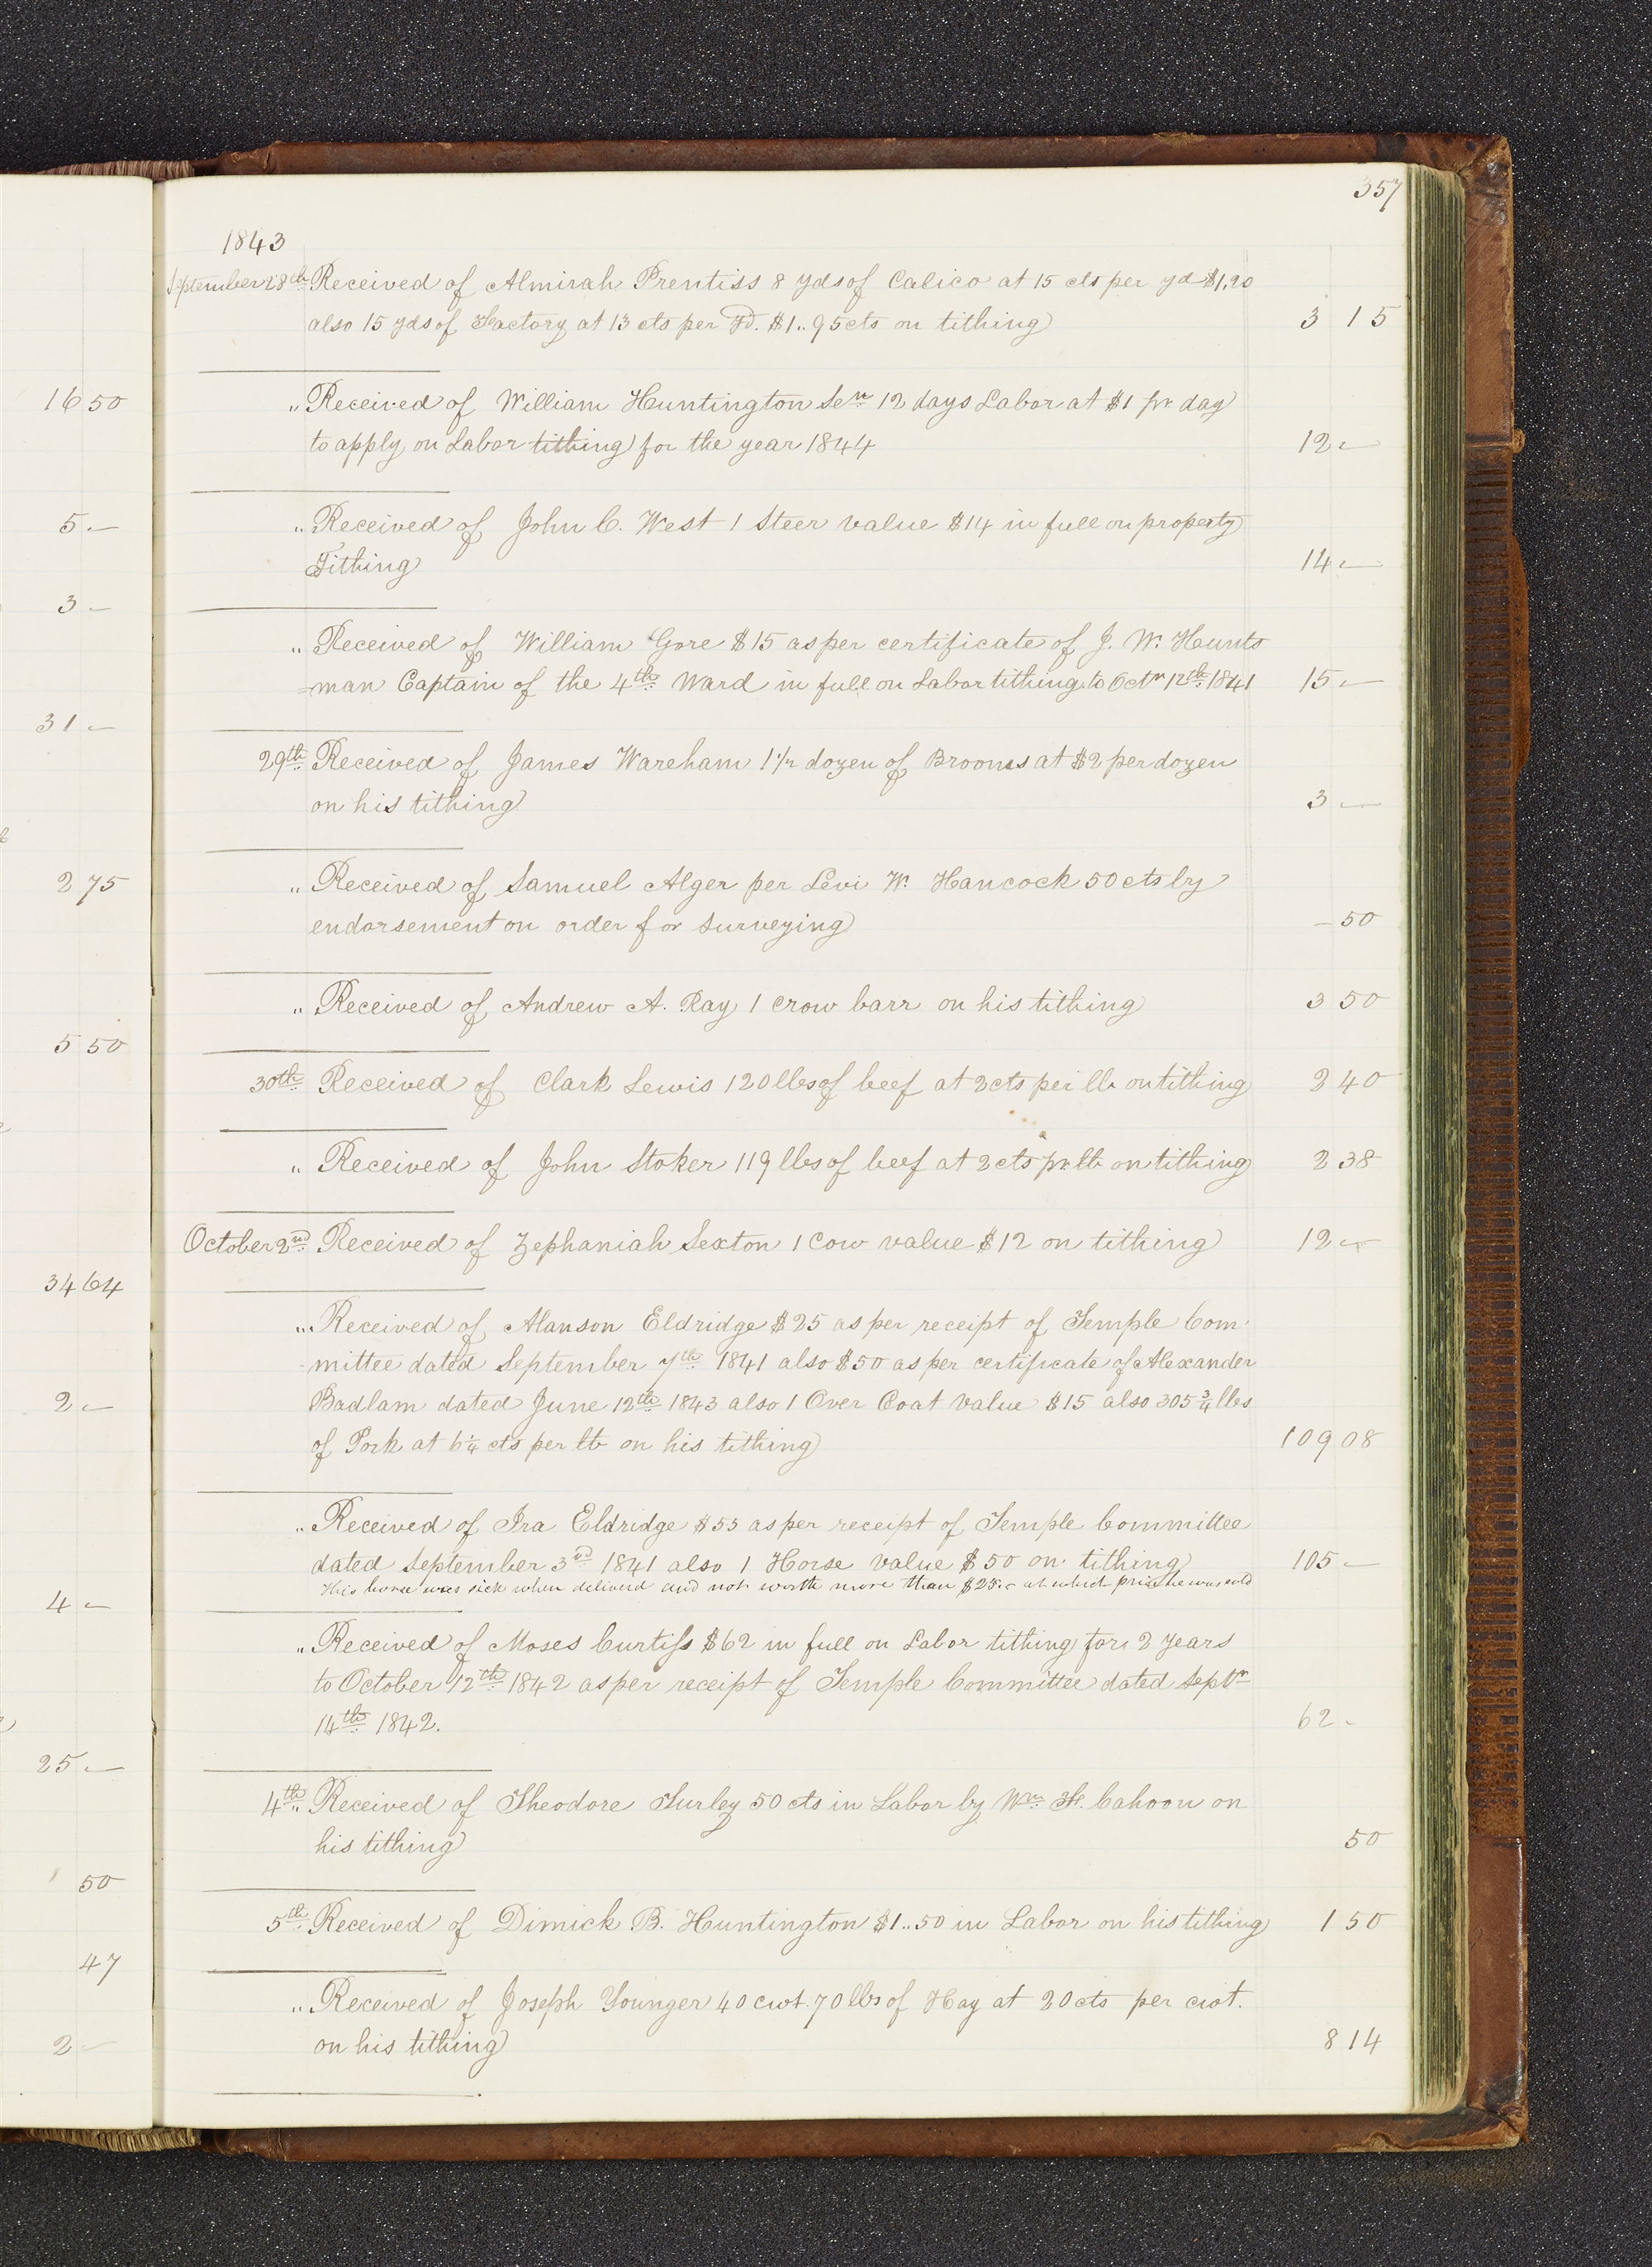 357
1843
September 28th Received of Almirah Prentiss 8 yds of Calico at 15 cts per yd $1,20
also 15 yds of Factory at 13 cts per Yd. $1..95cts on tithing 3 15
" Received of William Huntington Senr 12 days Labor at $1 pr day
to apply on Labor tithing for the year 1844 12 —
" Received of John C. West 1 Steer value $14 in full on property
Tithing 14 —
" Received of William Gore $15 as per certificate of J. W. Hunts
=man Captain of the 4th Ward in full on Labor tithing to Octr 12th 1841 15 —
29th Received of James Wareham 1 1/2 dozen of Brooms at $2 per dozen
on his tithing 3 —
" Received of Samuel Alger per Levi W. Hancock 50 cts by
endorsement on order for surveying — 50
" Received of Andrew A. Ray 1 crow barr on his tithing 3 50
30th Received of Clark Lewis 120 lbs of beef at 2cts per lb on tithing 2 40
" Received of John Stoker 119 lbs of beef at 2cts pr lb on tithing 2 38
October 2nd Received of Zephaniah Sexton 1 Cow value $12 on tithing 12 —
" Received of Alanson Eldridge $25 as per receipt of Temple Com-
-mittee dated September 7th 1841 also $50 as per certificate of Alexander
Badlam dated June 12th 1843 also 1 Over Coat value $15 also 305 3/4 lbs
of Pork at 6 1/4 cts per lb on his tithing 109 08
" Received of Ira Eldridge $55 as per receipt of Temple Committee
dated September 3rd 1841 also 1 Horse value $50 on tithing 105 —
This horse was sick when delivered and not worth more than $25.– at which price he was sold
" Received of Moses Curtiss $62 in full on Labor tithing for 2 years
to October 12th 1842 as per receipt of Temple Committee dated Septr
14th 1842. 62 -
4th " Received of Theodore Turley 50 cts in Labor by Wm. F. Cahoon on
his tithing 50
5th Received of Dimick B. Huntington $1..50 in Labor on his tithing 1 50
" Received of Joseph Younger 40 cwt. 70 lbs of Hay at 20 cts per cwt.
on his tithing 8 14
16 50
5 —
3 —
31 —
2 75
5 50
34 64
2 —
4 —
25 —
50
47
2 —